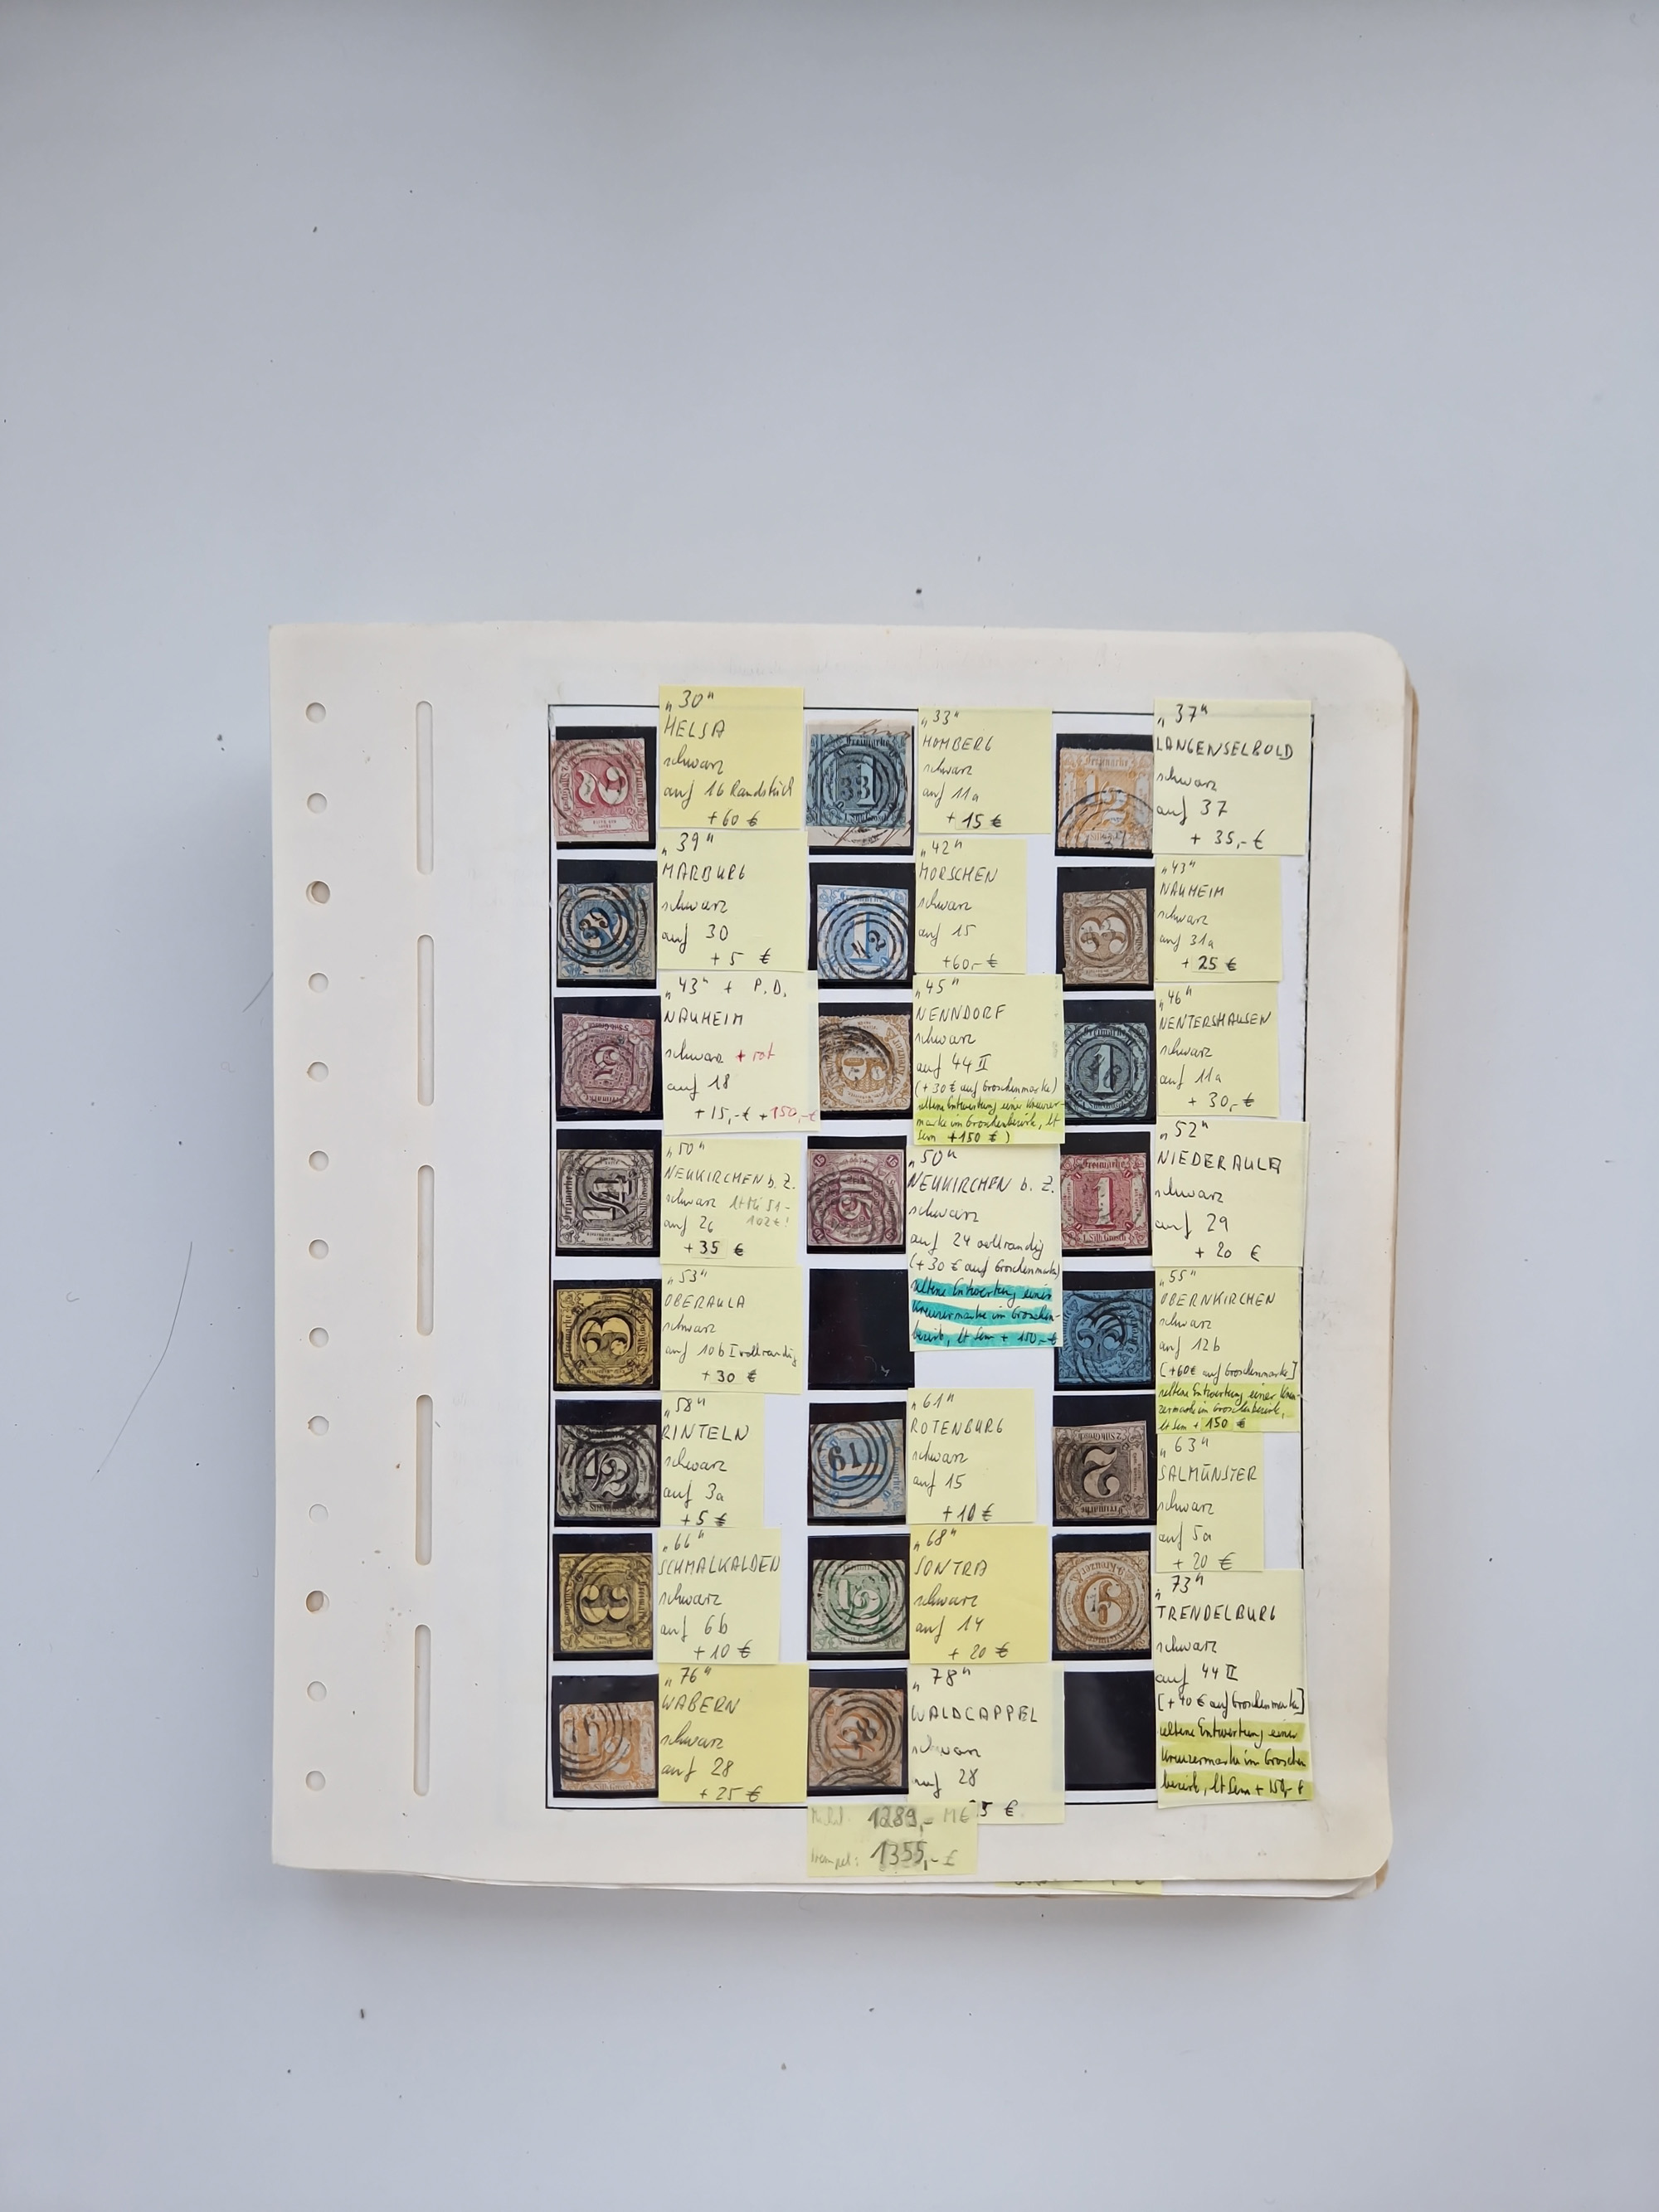 „30"
HELSA
schwarz
auf 16 Randstück
+60 €
„33"
HOMBERG
schwarz
auf 11a
+ 15 €
„37"
LANGENSELBOLD
schwarz
auf 37
+ 35,- €
„39"
MARBURG
schwarz
auf 30
+ 5 €
„42"
MORSCHEN
schwarz
auf 15
+60,- €
„43"
NAUHEIM
schwarz
auf 31a
+ 25 €
„43" + P.D.
NAUHEIM
schwarz + rot
auf 18
+15,-€ +150,-€
„45"
NENNDORF
schwarz
auf 44 II
(+30 € auf Groschenmarke)
seltene Entwertung einer Kreuzer-
marke im Groschenbereich, lt
Sem +150 €)
„46"
NENTERSHAUSEN
schwarz
auf 11a
+ 30,- €
„50"
NEUKIRCHEN b. Z.
schwarz lt Mi 51-
auf 26 102€!
+ 35 €
„50"
NEUKIRCHEN b. Z.
schwarz
auf 24 vollrandig
(+ 30 € auf Groschenmarke)
seltene Entwertung einer
Kreuzermarke im Groschen-
bereich, lt Sem + 150,- €
„52"
NIEDERAULA
schwarz
auf 29
+ 20 €
„53"
OBERAULA
schwarz
auf 10b I vollrandig
+ 30 €
„55"
OBERNKIRCHEN
schwarz
auf 12b
[+60€ auf Groschenmarke]
seltene Entwertung einer Kreu-
zermarke im Groschenbereich,
lt Sem + 150 €
„58"
RINTELN
schwarz
auf 3a
+ 5 €
„61"
ROTENBURG
schwarz
auf 15
+ 10 €
„63"
SALMÜNSTER
schwarz
auf 5a
+ 20 €
„66"
SCHMALKALDEN
schwarz
auf 6b
+ 10 €
„68"
SONTRA
schwarz
auf 14
+ 20 €
„73"
TRENDELBURG
schwarz
auf 44 II
[+ 40 € auf Groschenmarke]
seltene Entwertung einer
Kreuzermarke im Groschen
bereich, lt Sem + 150,- €
„76"
WABERN
schwarz
auf 28
+ 25 €
„78"
WALDCAPPEL
schwarz
auf 28
5 €
1289,- M€
Stempel: 1355,- €